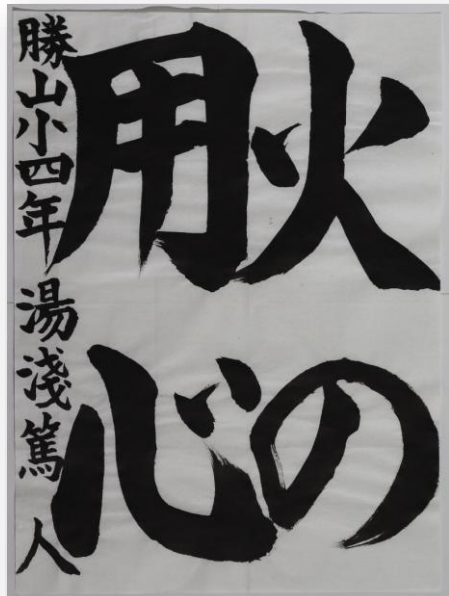 火の
用心
勝山小四年 湯淺篤人